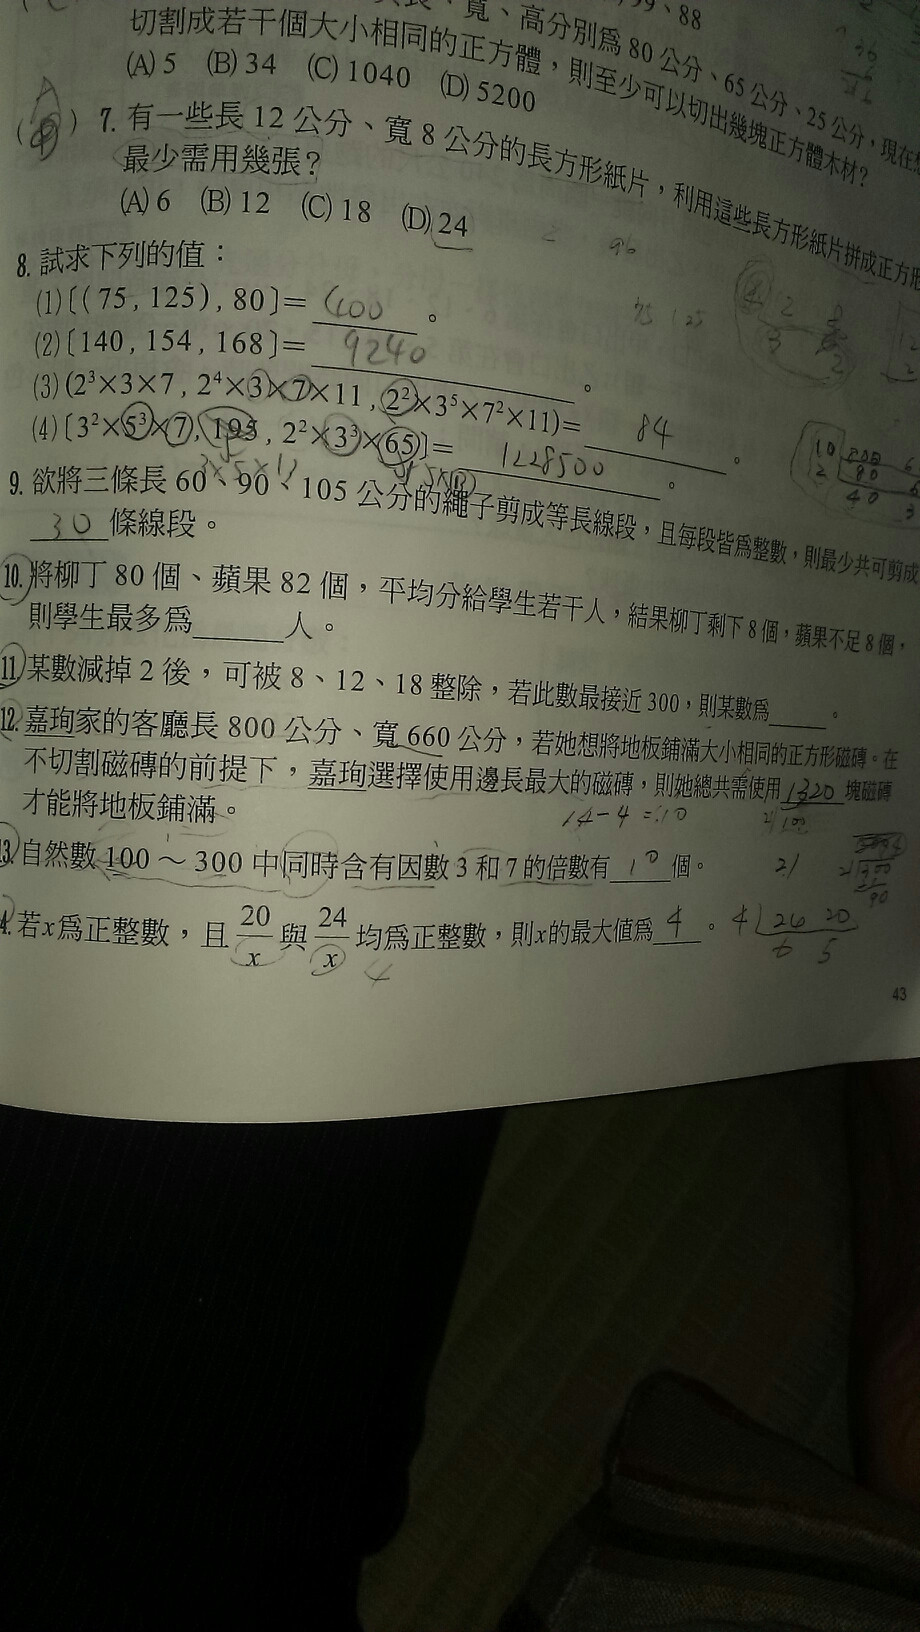 、寬、高分別為 80 公分、65 公分、25 公分，現在
切割成若干個大小相同的正方體，則至少可以切出幾塊正方體木材？
(A) 5 (B) 34 (C) 1040 (D) 5200
7. 有一些長 12 公分、寬 8 公分的長方形紙片，利用這些長方形紙片拼成正方形
最少需用幾張？
(A) 6 (B) 12 (C) 18 (D) 24
8. 試求下列的值：
(1)〔( 75 , 125 ) , 80〕= 400 。
(2)〔140 , 154 , 168〕= 9240 。
(3) (2³×3×7 , 2⁴×3×7×11 , 2²×3⁵×7²×11)= 84 。
(4)〔3²×5³×7 , 195 , 2²×3³×65〕= 1228500 。
9. 欲將三條長 60、90、105 公分的繩子剪成等長線段，且每段皆為整數，則最少共可剪成
30 條線段。
10. 將柳丁 80 個、蘋果 82 個，平均分給學生若干人，結果柳丁剩下 8 個，蘋果不足 8 個，
則學生最多為＿＿＿人。
11. 某數減掉 2 後，可被 8、12、18 整除，若此數最接近 300，則某數為＿＿＿。
12. 嘉珣家的客廳長 800 公分、寬 660 公分，若她想將地板鋪滿大小相同的正方形磁磚。在
不切割磁磚的前提下，嘉珣選擇使用邊長最大的磁磚，則她總共需使用 1320 塊磁磚
才能將地板鋪滿。
14-4=10
13. 自然數 100 ～ 300 中同時含有因數 3 和 7 的倍數有 10 個。 21
4. 若x為正整數，且 20/x 與 24/x 均為正整數，則x的最大值為 4 。 4 24 20
6 5
4
43